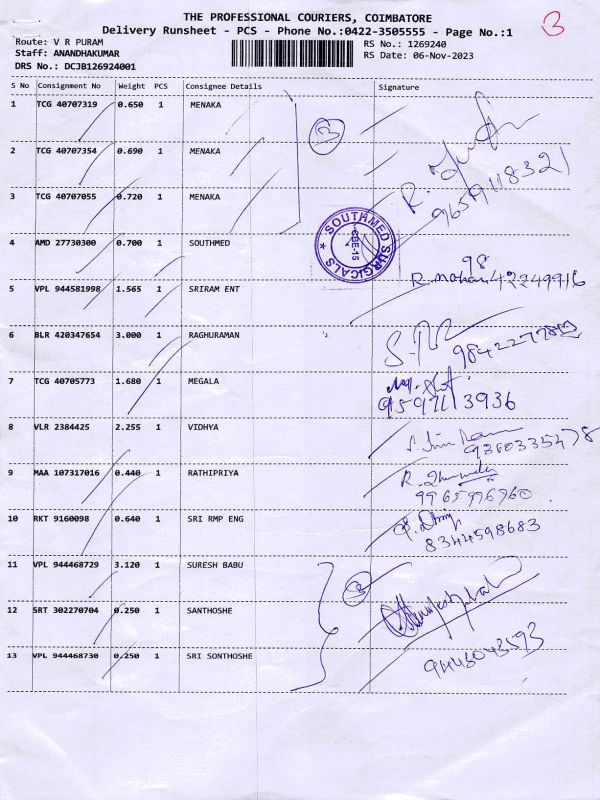 3
THE PROFESSIONAL COURIERS, COIMBATORE
Delivery Runsheet - PCS - Phone No.:0422-3505555 - Page No.:1
Route: V R PURAM
RS No.: 1269240
Staff: ANANDHAKUMAR
RS Date: 06-Nov-2023
DRS No.: DCJB126924001
S No Consignment No Weight PCS Consignee Details Signature
1 TCG 40707319 0.650 1 MENAKA
3
2 TCG 40707354 0.690 1 MENAKA
3 TCG 40707055 0.720 1 MENAKA
R.
9659118321
4 AMD 27730300 0.700 1 SOUTHMED
SOUTHMED SURGICALS
CBE-15
98
R. mohan 42249916
5 VPL 944581998 1.565 1 SRIRAM ENT
6 BLR 420347654 3.000 1 RAGHURAMAN
7 TCG 40705773 1.680 1 MEGALA
9597113936
8 VLR 2384425 2.255 1 VIDHYA
9360335478
9 MAA 107317016 0.440 1 RATHIPRIYA
9965996960
10 RKT 9160098 0.640 1 SRI RMP ENG
8344598683
11 VPL 944468729 3.120 1 SURESH BABU
3
12 SRT 302270704 0.250 1 SANTHOSHE
13 VPL 944468730 0.250 1 SRI SONTHOSHE
9443043593